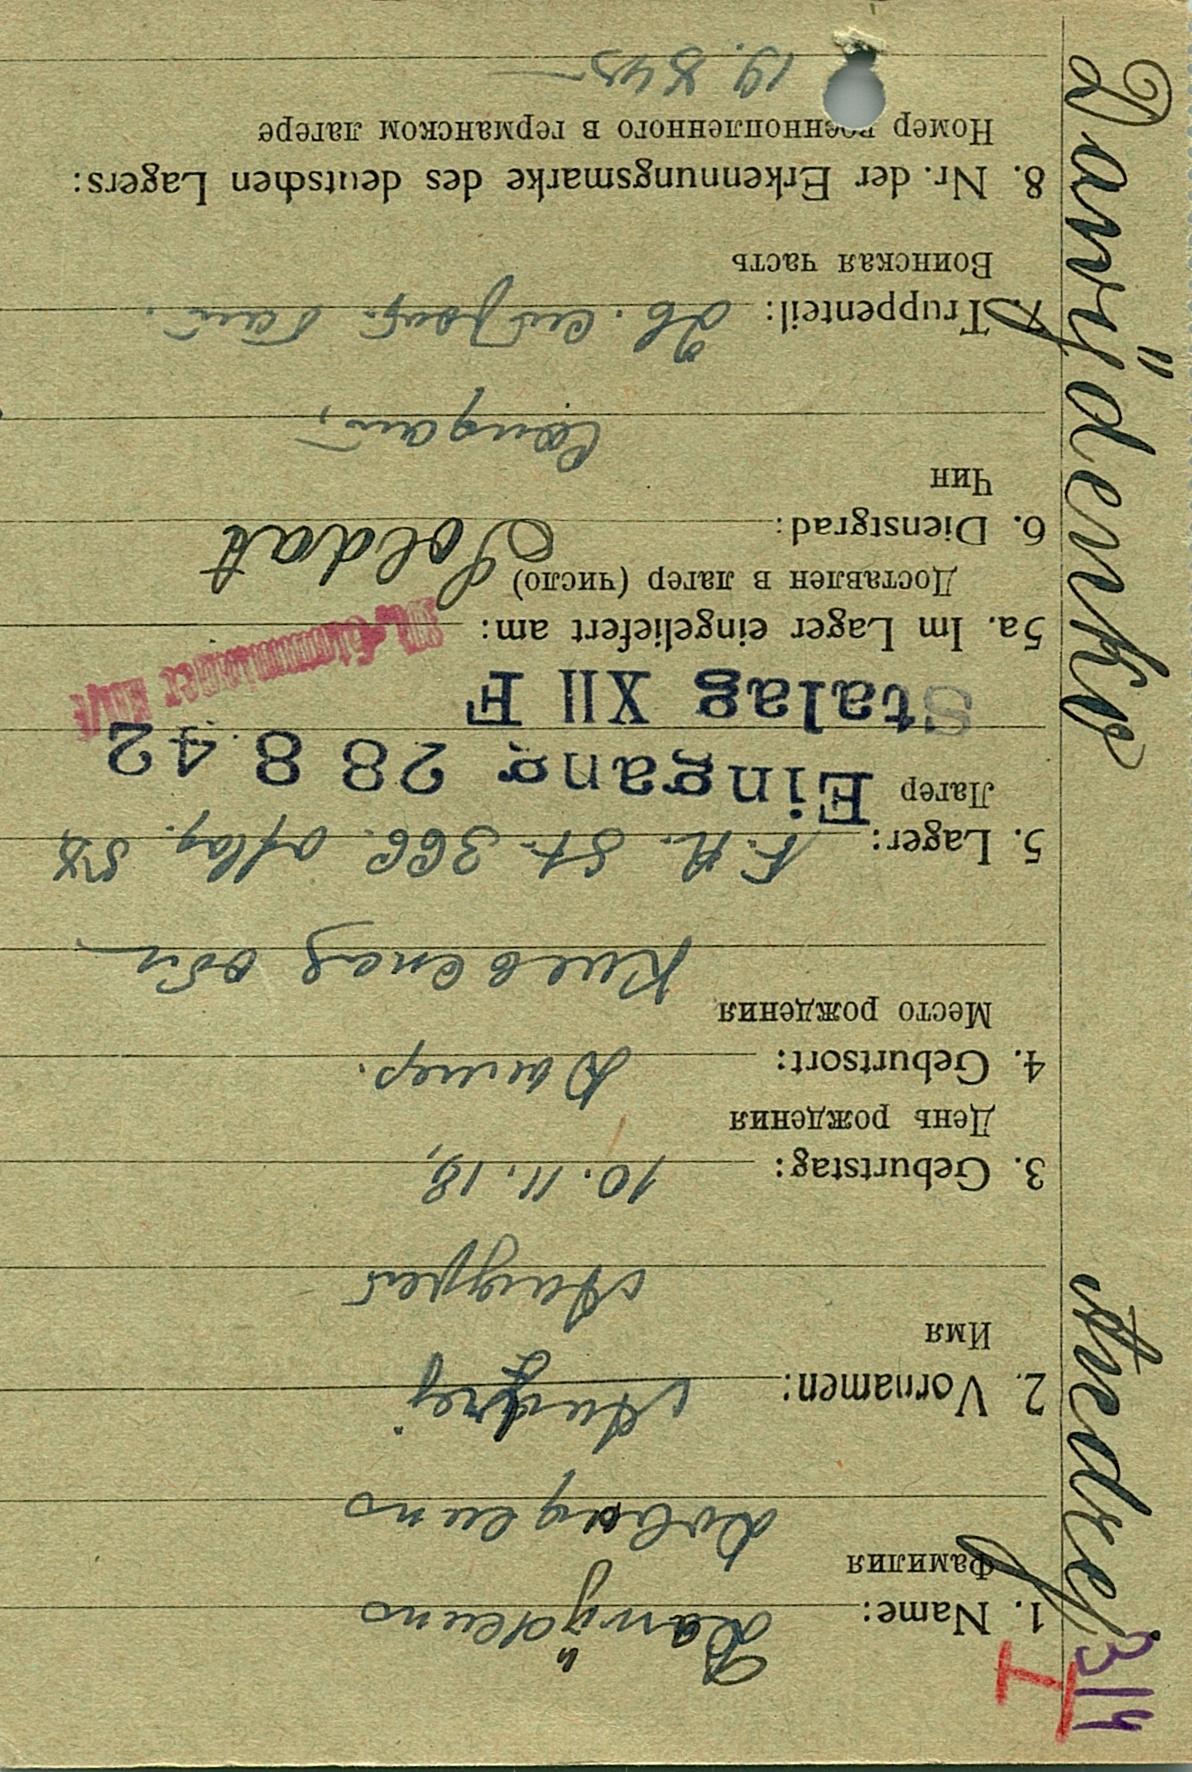 Dawÿdenko Andrej
314
I
1. Name: Dawÿdenko
Фамилия
Давыденко
2. Vornamen: Andrej
Имя
Андрей
3. Geburtstag: 10. 11. 18,
День рождения
4. Geburtsort:
Место рождения
Киевская обл
5. Lager: St. 366. Oflag. 58
Лагер
Eingang 28 8 42
Stalag XII F
5a. Im Lager eingeliefert am:
Доставлен в лагер (число)
6. Dienstgrad: Soldat
Чин
Солдат,
7. Truppenteil:
Воинская часть
8. Nr. der Erkennungsmarke des deutschen Lagers:
Номер военнопленного в германском лагере
19. 845